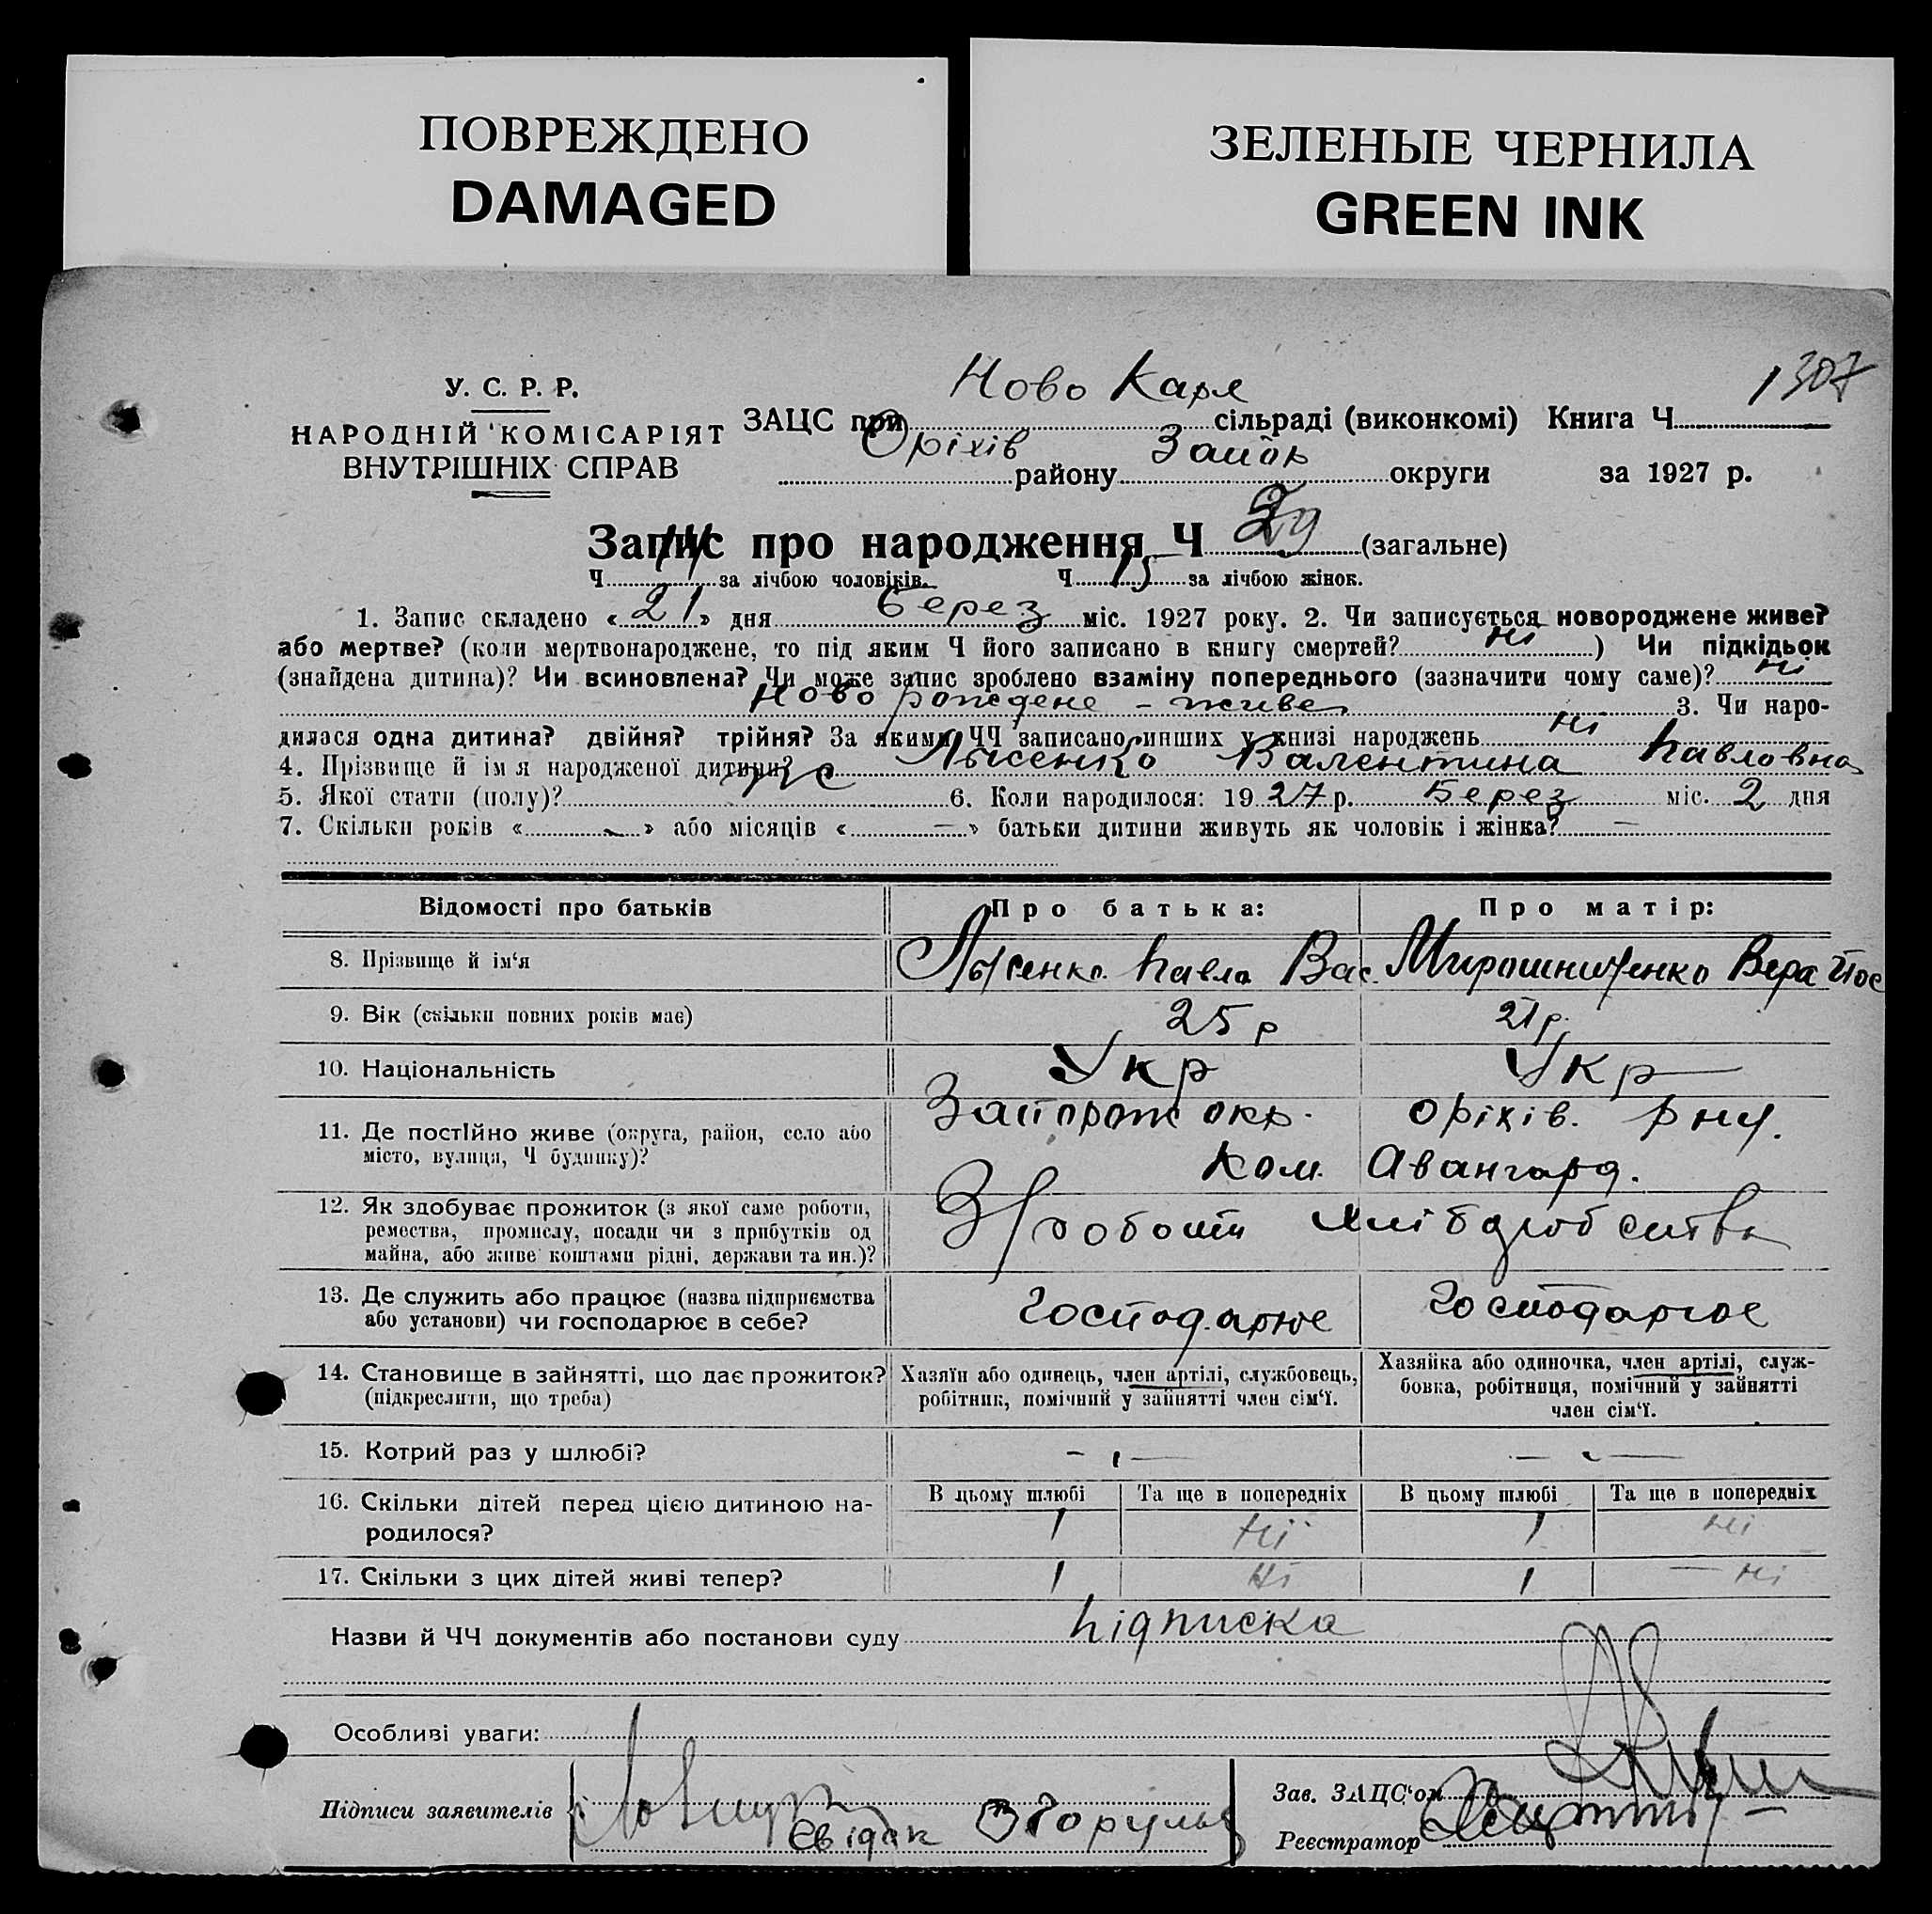 ПОВРЕЖДЕНО
DAMAGED
ЗЕЛЕНЫЕ ЧЕРНИЛА
GREEN INK
1307
У. С. Р. Р.
НАРОДНІЙ КОМІСАРІЯТ
ВНУТРІШНІХ СПРАВ
ЗАЦС при Ново Карл сільраді (виконкомі) Книга Ч.
Оріхів району Запор округи за 1927 р.
Запис про народження Ч 29 (загальне)
Ч 14 за лічбою чоловіків. Ч 15 за лічбою жінок.
1. Запис складено «21» дня Берез міс. 1927 року. 2. Чи записується новороджене живе?
або мертве? (коли мертвонароджене, то під яким Ч його записано в книгу смертей? Ні) Чи підкідьок
(знайдена дитина)? Чи всиновлена? Чи може запис зроблено взаміну попереднього (зазначити чому саме)? Ні
Новорождене - живе 3. Чи наро-
дилася одна дитина? двійня? трійня? За якими ЧЧ записано инших у книзі народжень Ні
4. Прізвище й ім я народженої дитини? Лысенко Валентина Павловна
5. Якої стати (полу)? жс 6. Коли народилося: 1927 р. Берез міс. 2 дня
7. Скільки років «—» або місяців «—» батьки дитини живуть як чоловік і жінка? —
Відомості про батьків Про батька: Про матір:
8. Прізвище й ім‘я Лысенко Павло Вас. Мирошниченко Вера Иос
9. Вік (скільки повних років має) 25 р 21 р.
10. Національність Укр Укр
11. Де постійно живе (округа, район, село або
місто, вулиця, Ч будинку)?
Запорож окр. Оріхів. рну.
Ком. Авангард.
12. Як здобуває прожиток (з якої саме роботи,
ремества, промислу, посади чи з прибутків од
майна, або живе коштами рідні, держави та ин.)?
З роботи хліборобства
13. Де служить або працює (назва підприємства
або установи) чи господарює в себе?
Господарює Господарює
14. Становище в зайнятті, що дає прожиток?
(підкреслити, що треба)
Хазяїн або одинець, член артілі, службовець,
робітник, помічний у зайнятті член сім‘ї.
Хазяйка або одиночка, член артілі, служ-
бовка, робітниця, помічний у зайнятті
член сім‘ї.
15. Котрий раз у шлюбі? — —
16. Скільки дітей перед цією дитиною на-
родилося?
В цьому шлюбі Та ще в попередніх В цьому шлюбі Та ще в попередніх
1 Ні 1 Ні
17. Скільки з цих дітей живі тепер? 1 Ні 1 — Ні
Назви й ЧЧ документів або постанови суду Підписка
Особливі уваги:
Підписи заявителів
Свідок
Зав. ЗАЦС‘ом
Реєстратор